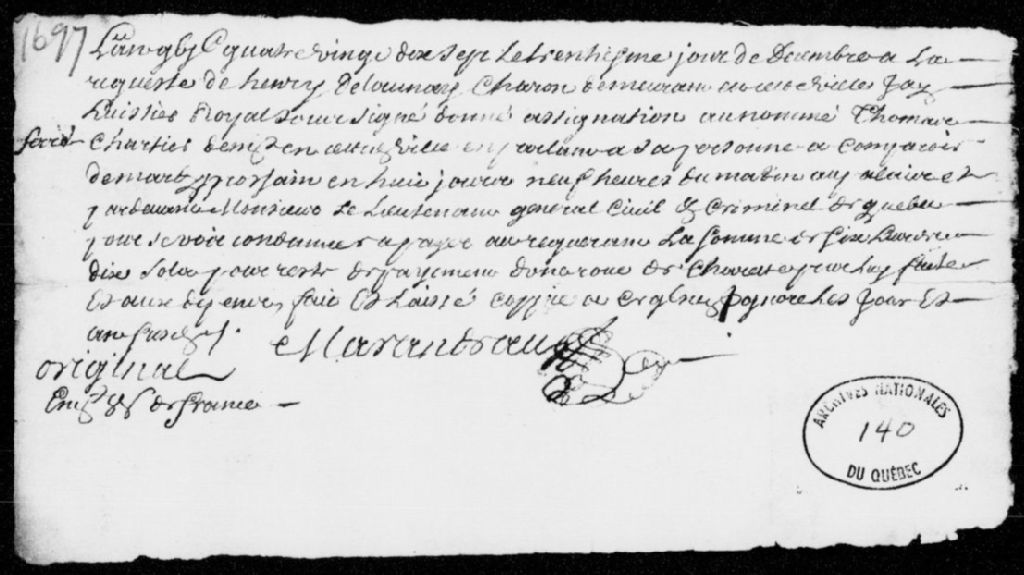 1697
L'an gbjC quatre vingt dix sept le trentiesme jour de decembre a La
requeste de henry Delaunay Charon demeurant en cette ville Jay
huissier Royal soussigné donné assignation au nommé Thomas
Chartier demt en cette ville en parlant a sa personne a comparoir
de mardy prochain en huit jours neuf heures du matin au
pardevant Monsieur Le Lieutenant general Civil & Criminel de quebec
pour se voir condamner a payer au requerant La somme de six Livres
dix sols pour reste de payement d'une roue de Charette par luy faite
Et aux depens, fait Et Laissé coppie les Jour Et
an susd
Marandeau
original
de france
ARCHIVES NATIONALES
140
DU QUÉBEC